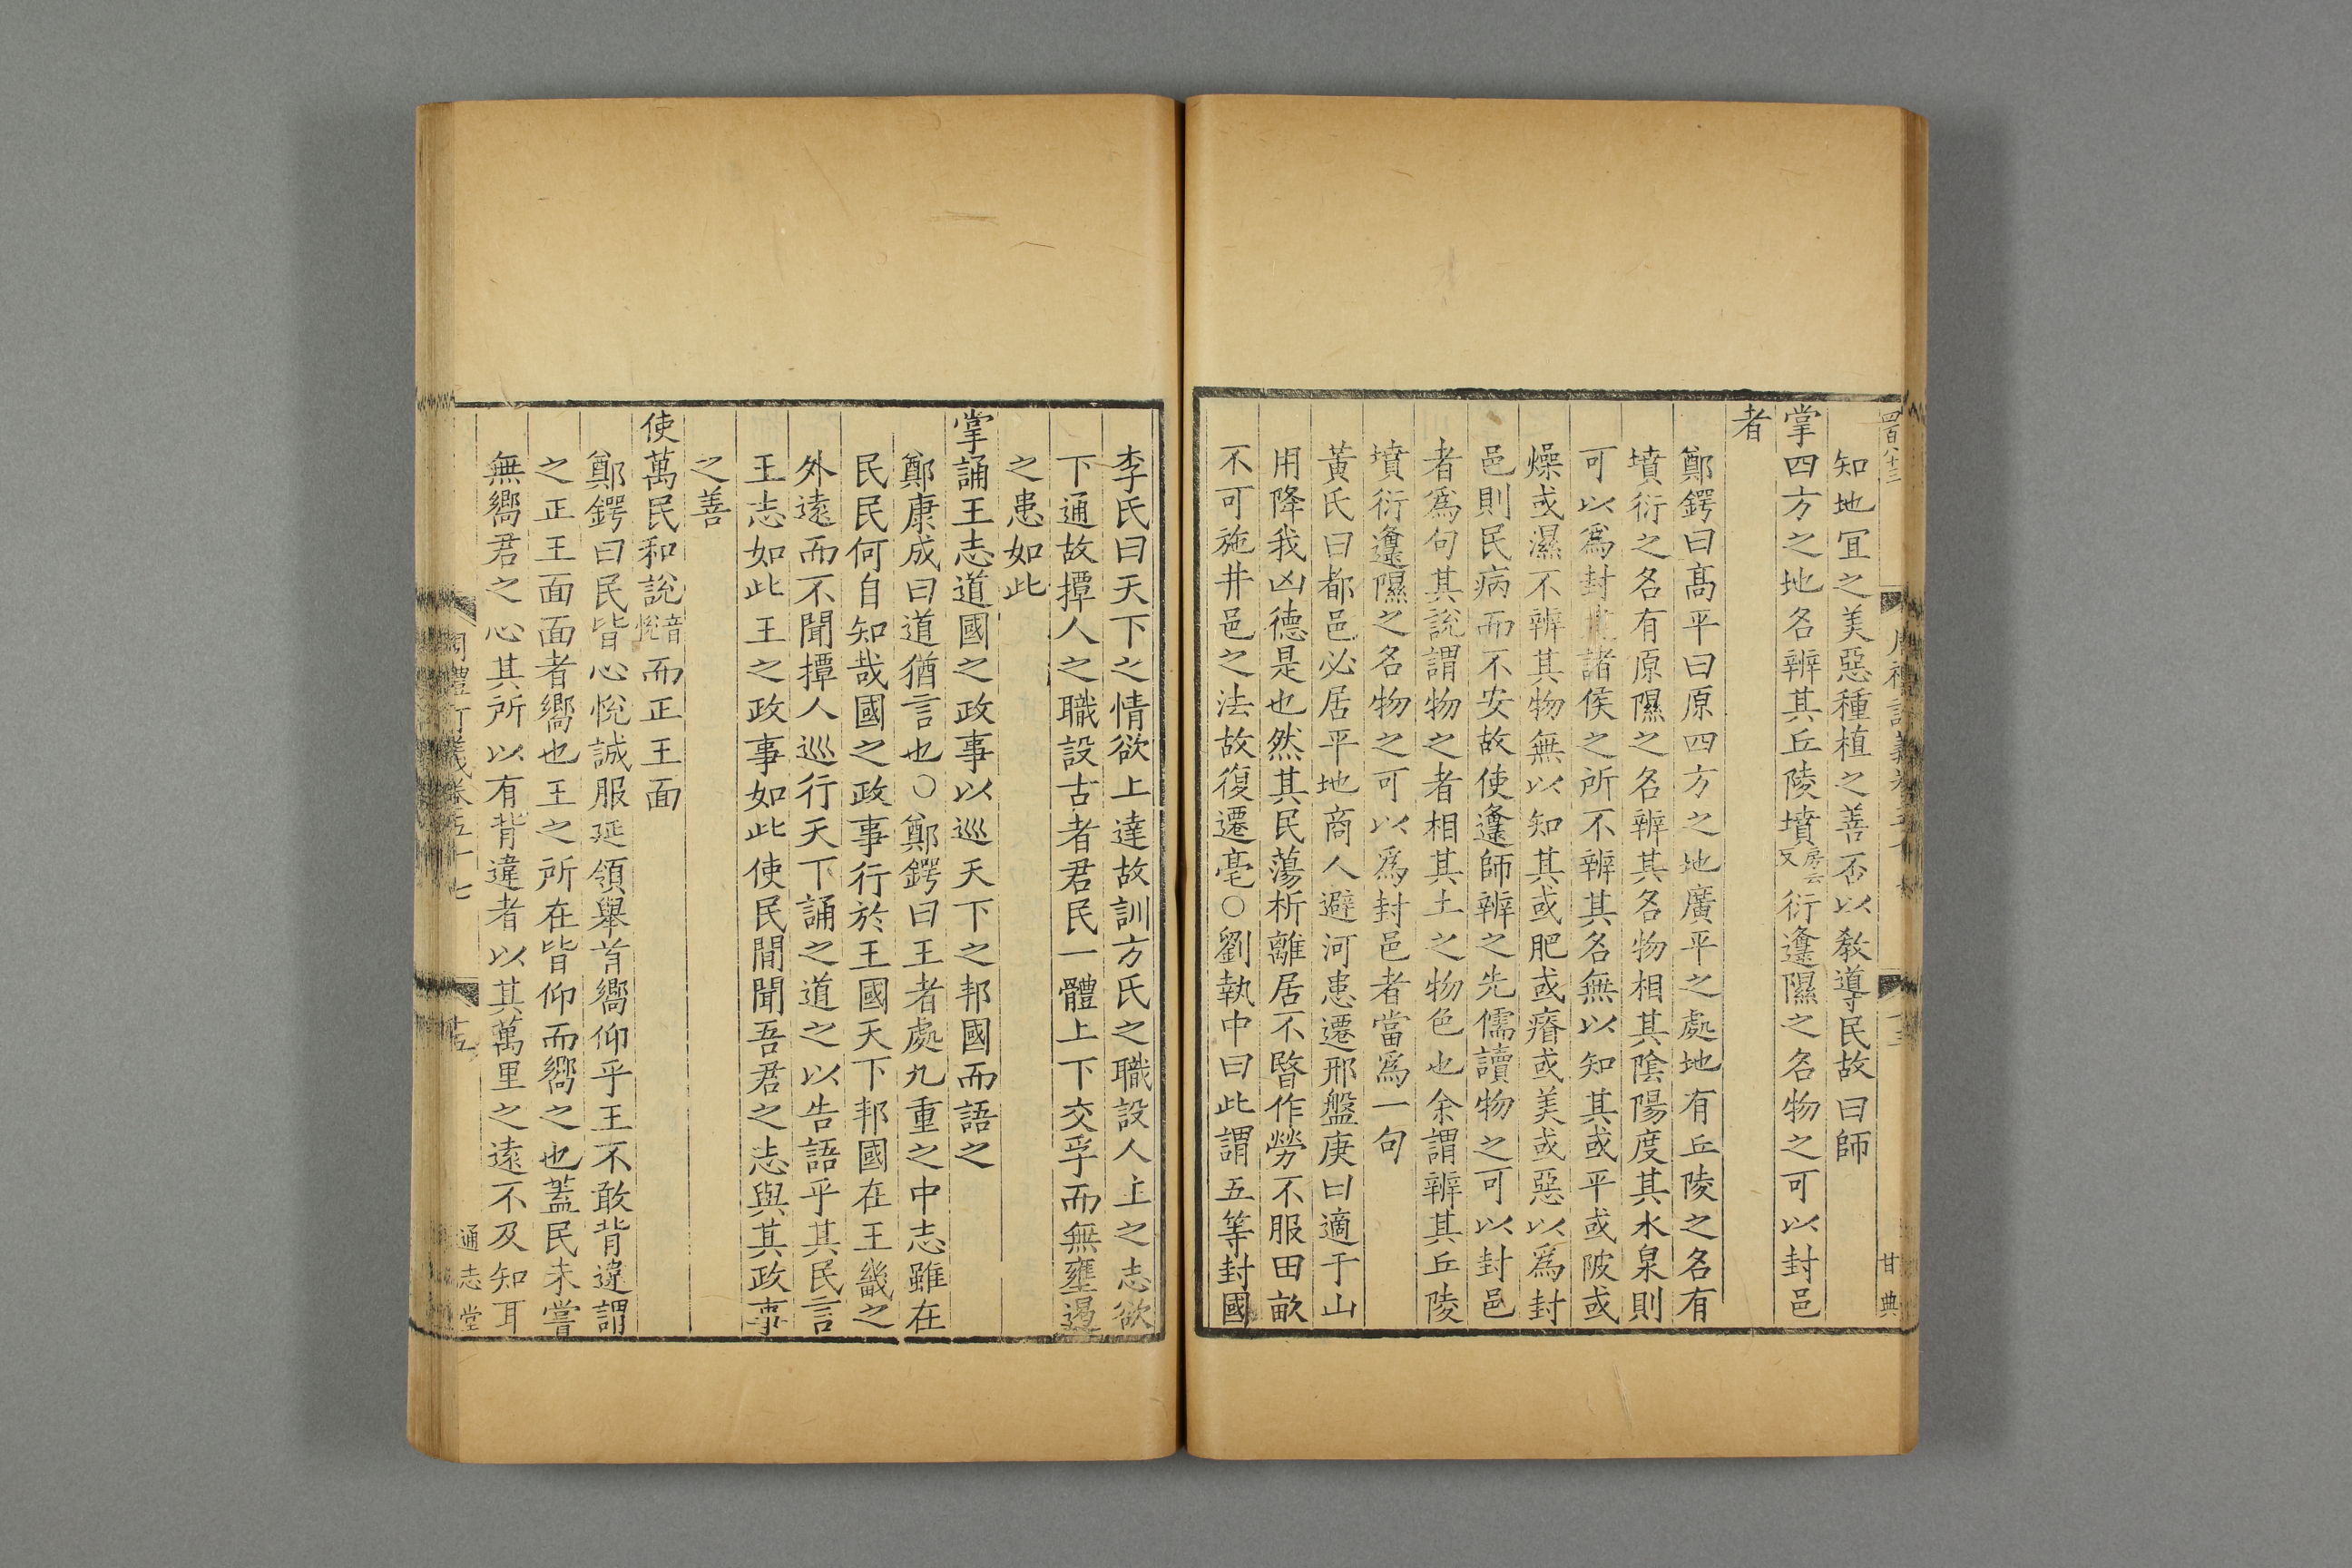 四百八十三
甘典
知地宜之美惡種植之善否以教導民故曰師
掌四方之地名辨其丘陵墳房云反衍邍隰之名物之可以封邑
者
鄭鍔曰髙平曰原四方之地廣平之處地有丘陵之名有
墳衍之名有原隰之名辨其各物相其陰陽度其水泉則
可以爲封諸侯之所不辨其名無以知其或平或陂或
燥或濕不辨其物無以知其或肥或瘠或美或惡以爲封
邑則民病而不安故使邍師辨之先儒讀物之可以封邑
者爲句其說謂物之者相其土之物色也余謂辨其丘陵
墳衍邍隰之名物之可以爲封邑者當爲一句
黃氏曰都邑必居平地商人避河患遷邢盤庚曰適于山
用降我凶德是也然其民蕩析離居不暋作勞不服田畝
不可施井邑之法故復遷亳○劉執中曰此謂五等封國
李氏曰天下之情欲上達故訓方氏之職設人主之志欲
下通故撢人之職設古者君民一體上下交孚而無壅遏
之患如此
掌誦王志道國之政事以巡天下之邦國而語之
鄭康成曰道猶言也○鄭鍔曰王者處九重之中志雖在
民民何自知哉國之政事行於王國天下邦國在王畿之
外遠而不聞撢人巡行天下誦之道之以告語乎其民言
王志如此王之政事如此使民間聞吾君之志與其政事
之善
使萬民和說音悅而正王面
鄭鍔曰民皆心悅誠服延領舉首嚮仰乎王不敢背違謂
之正王面面者嚮也王之所在皆仰而嚮之也蓋民未嘗
無嚮君之心其所以有背違者以其萬里之遠不及知耳
周禮訂義卷五十七
十五
通志堂